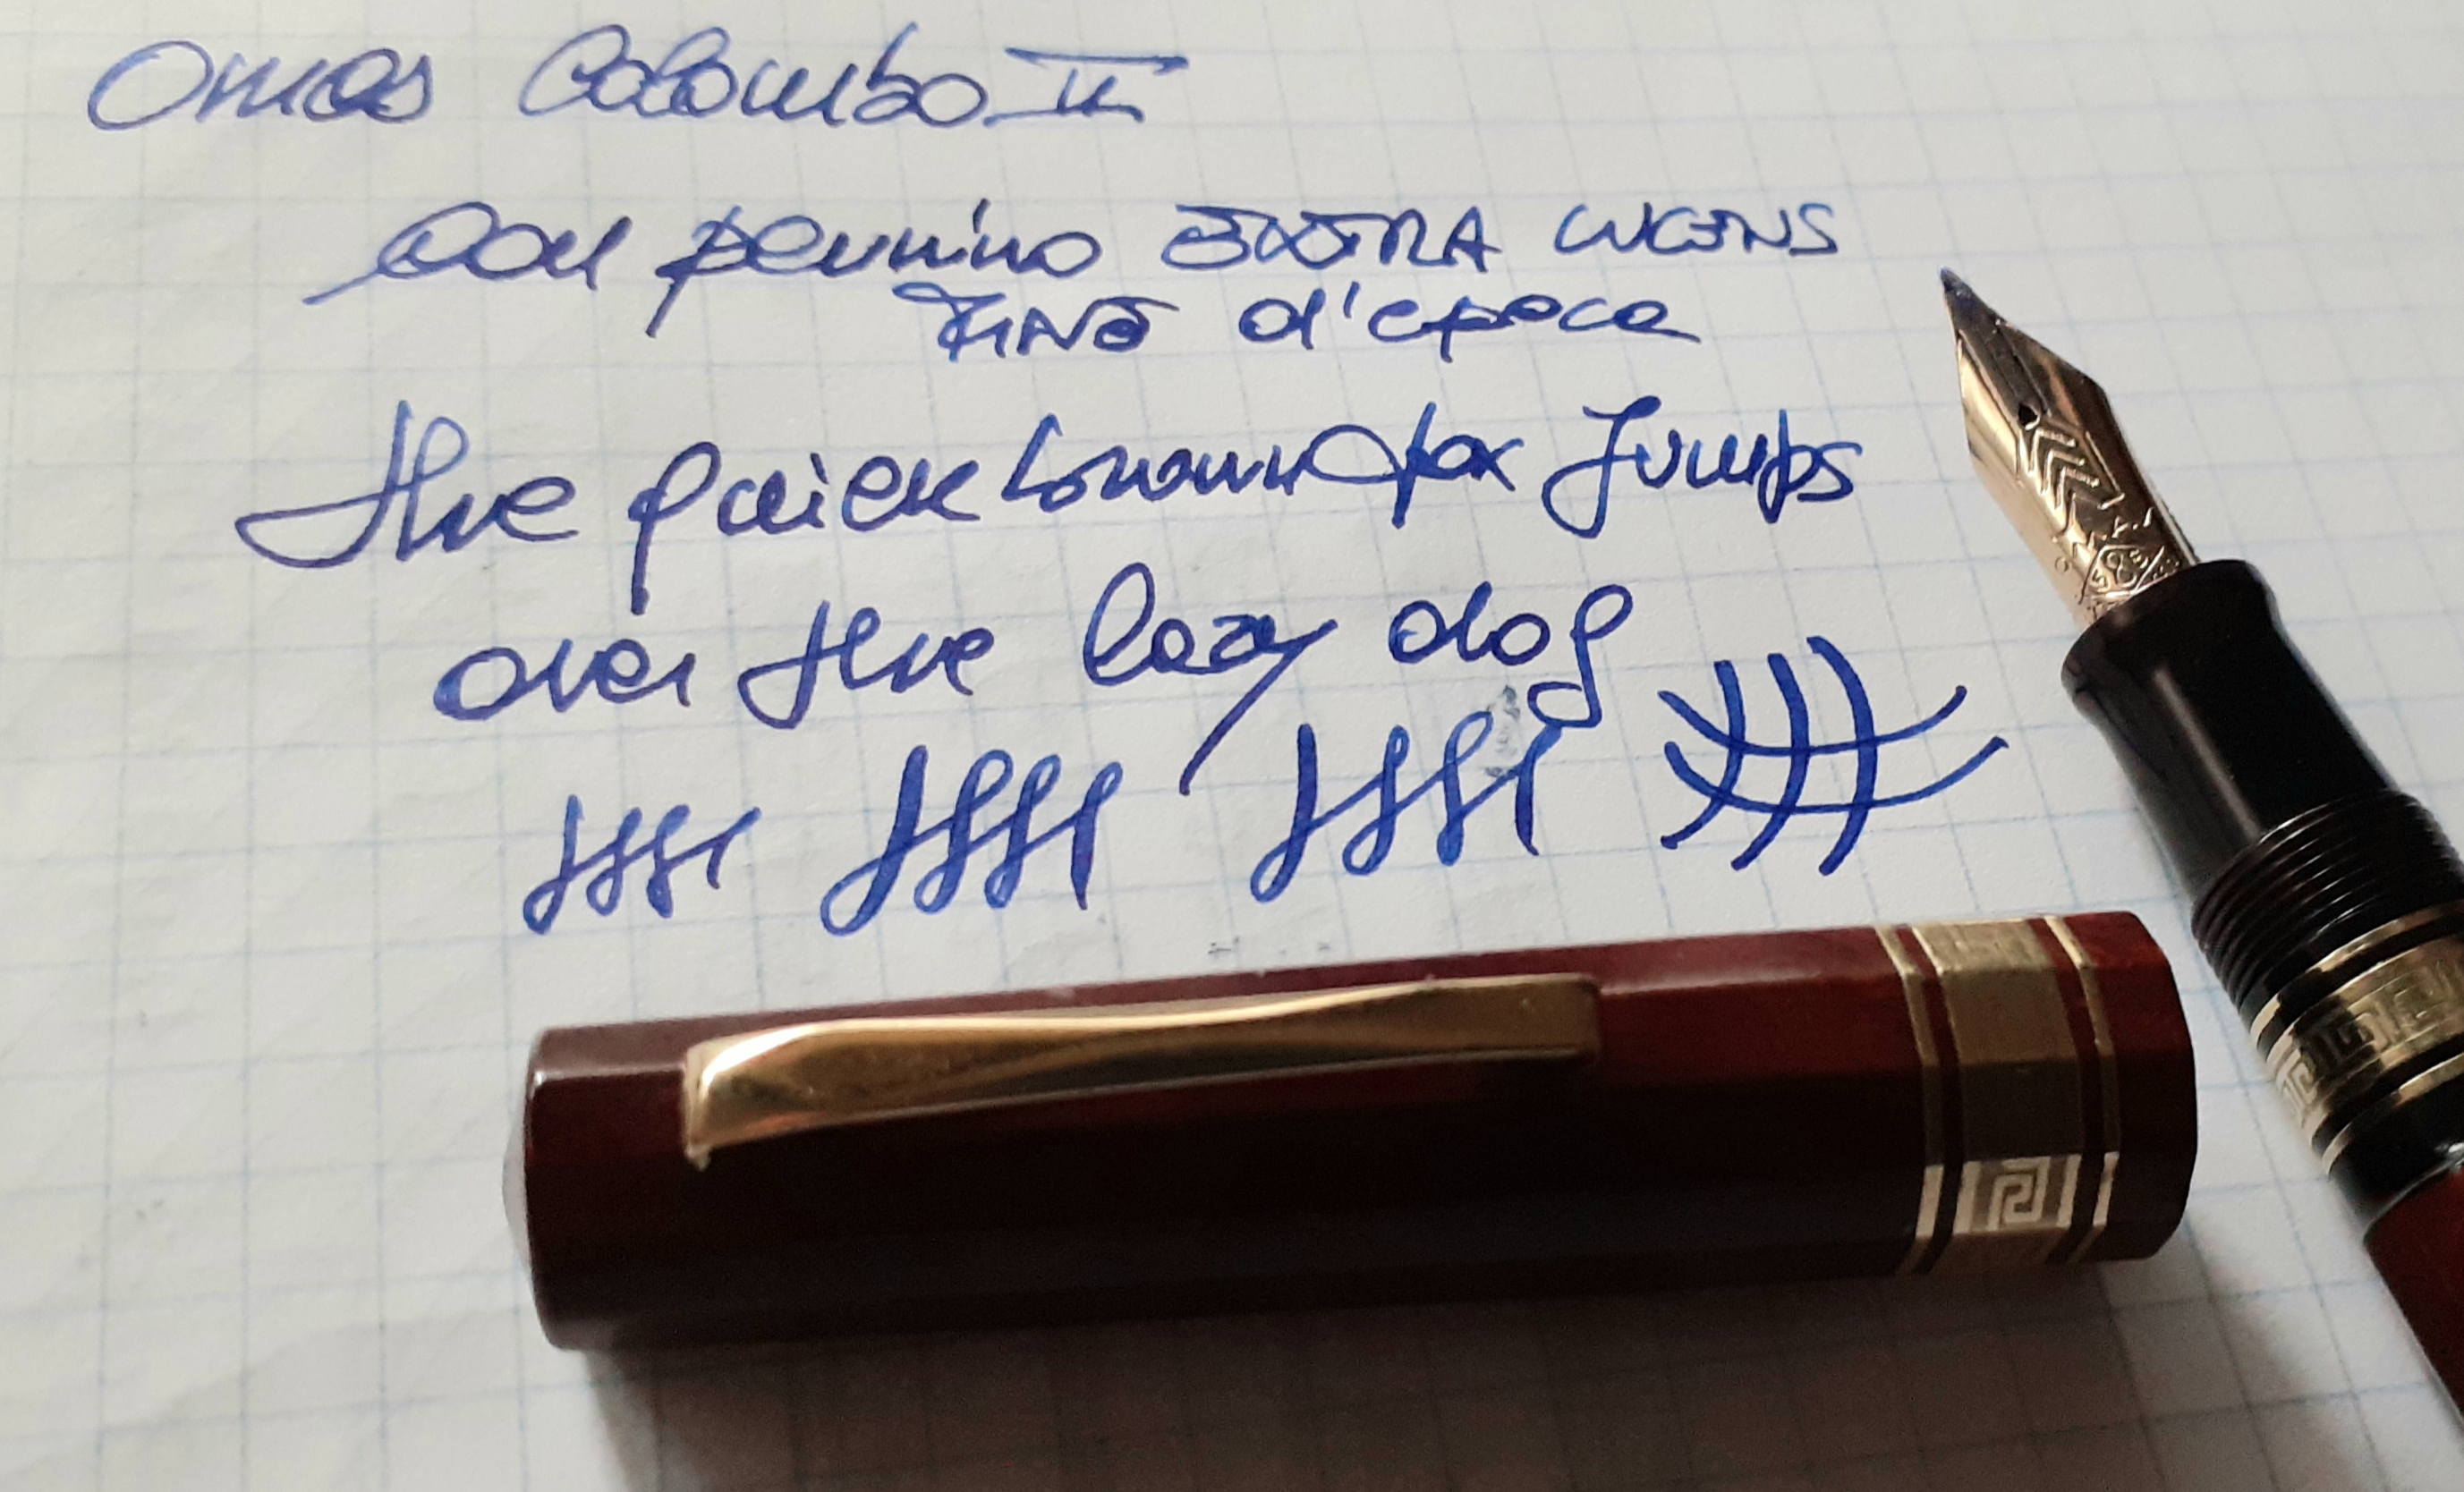 Omas Colombo II
con pennino EXTRA LUCENS
FINE d'epoca
the quick brown fox Jumps
over the lazy dog
585